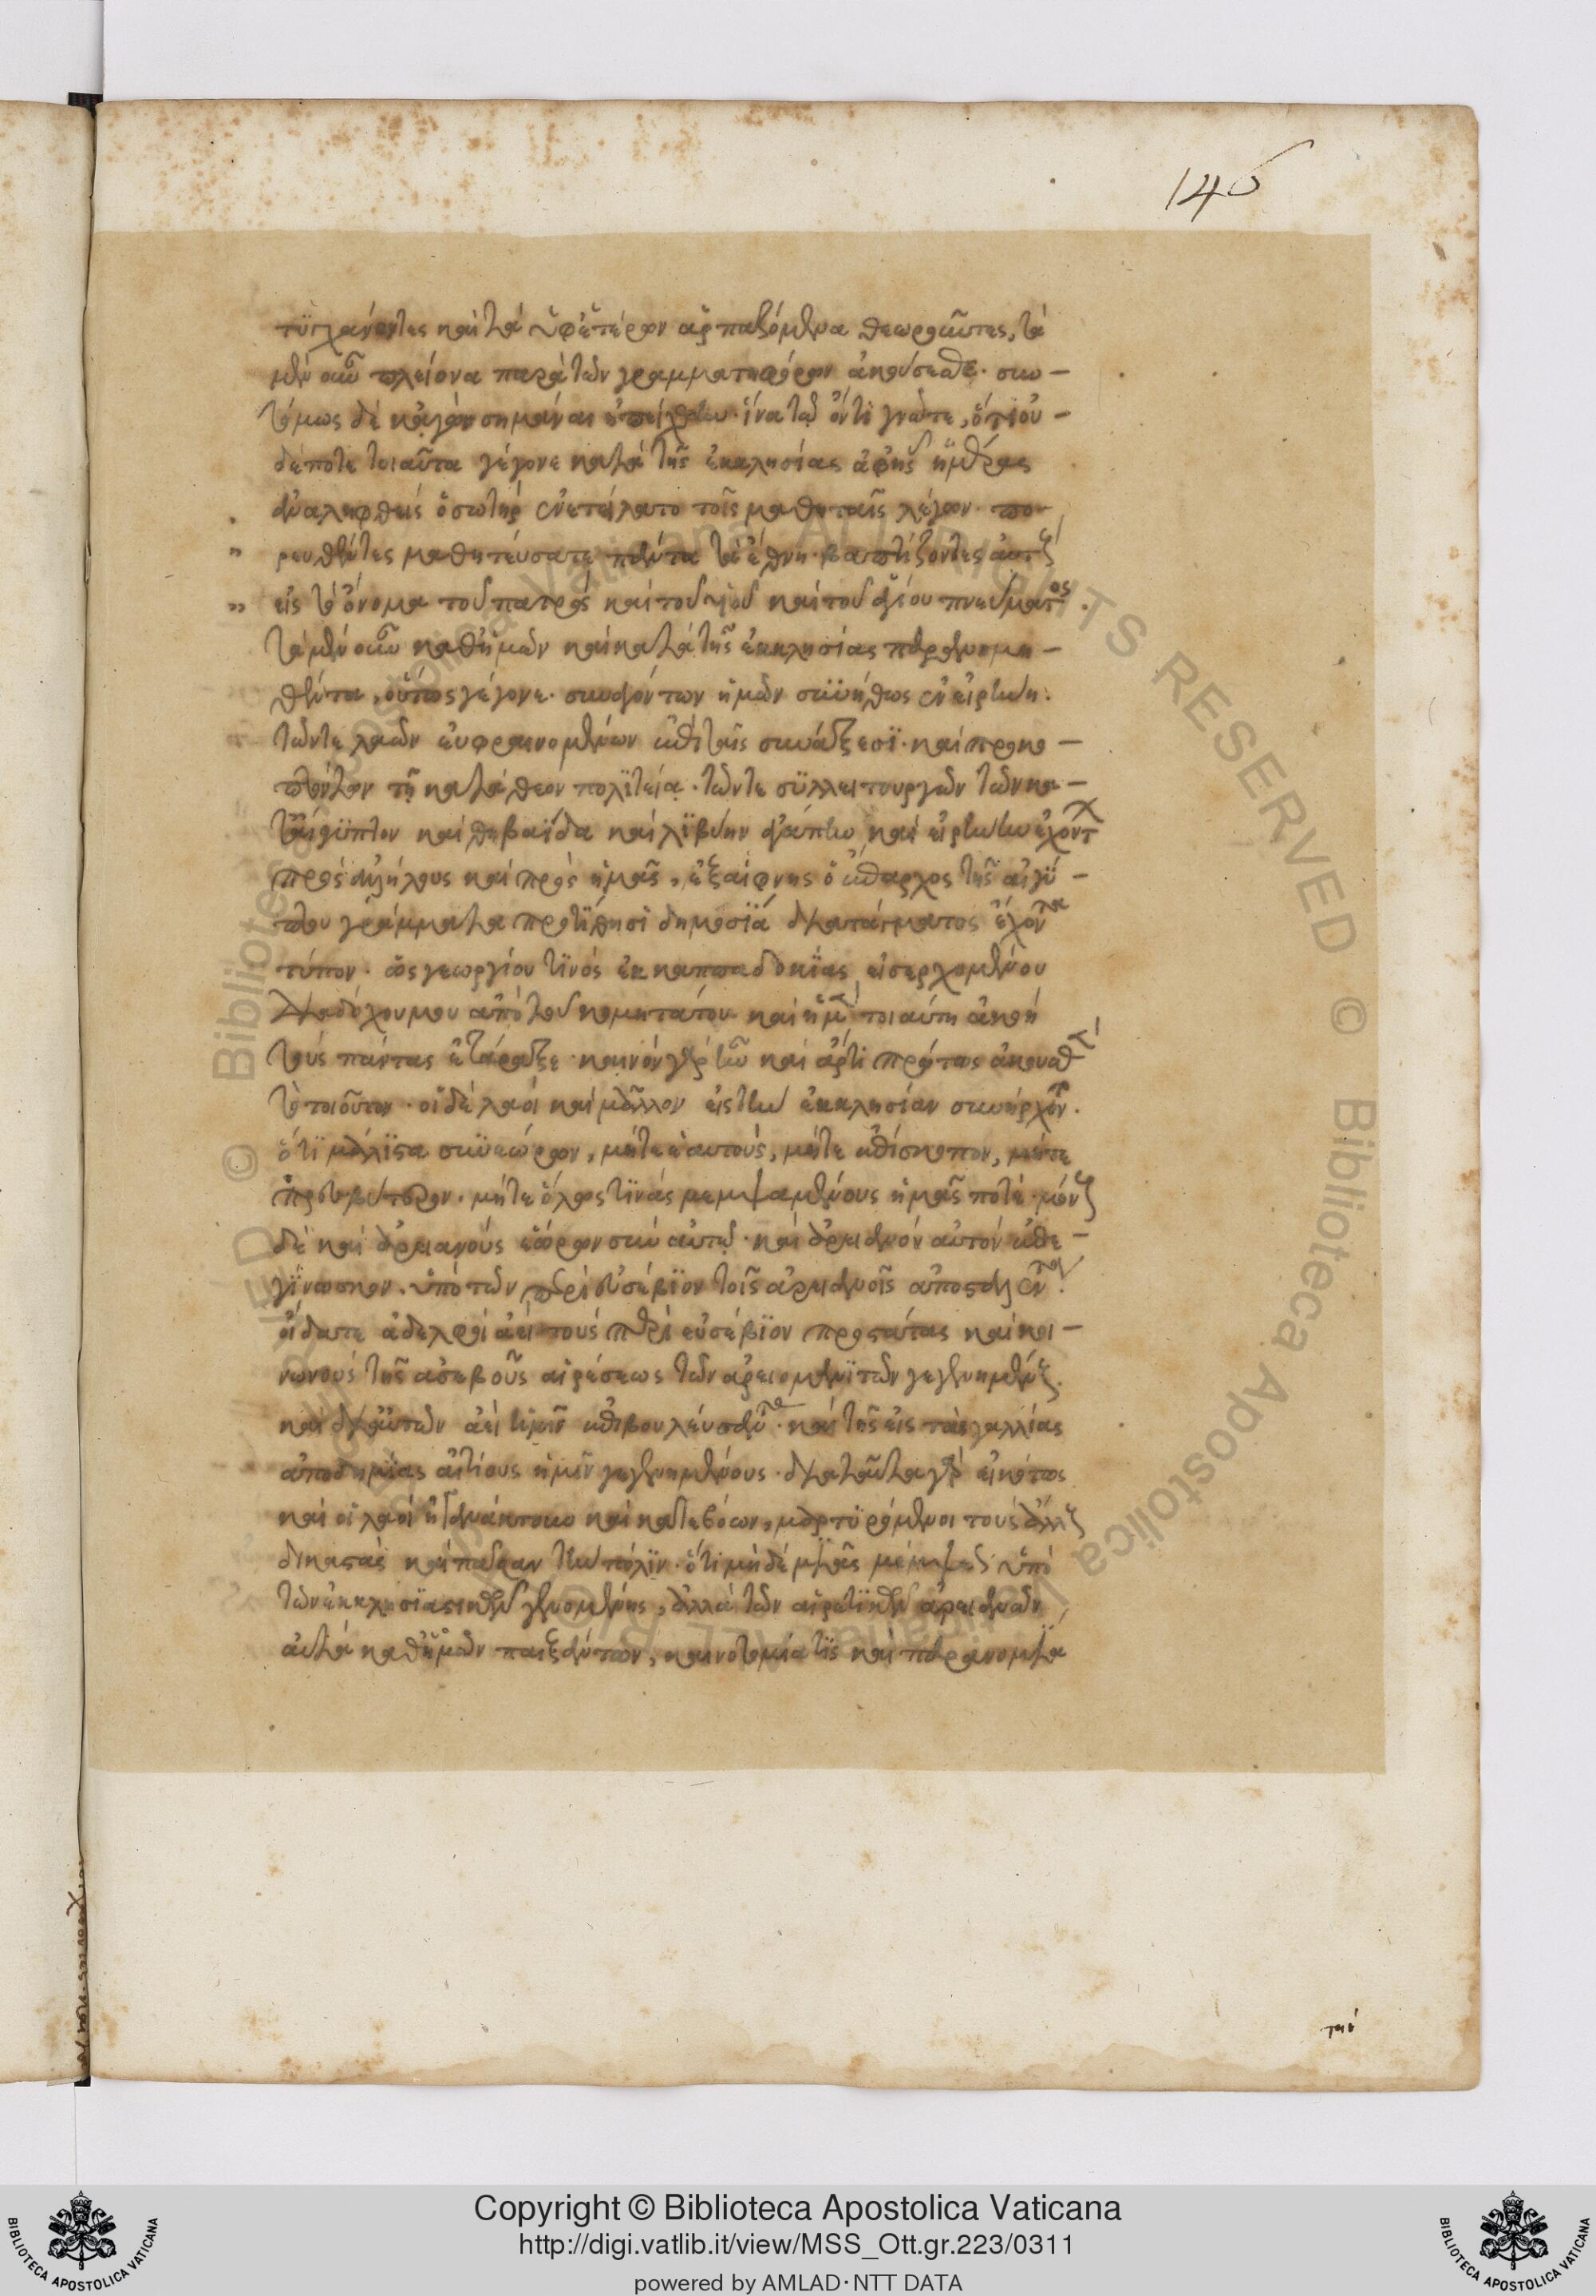 146
τυγχάνοντες καὶ τὰ ὑφ' ἑτέρων ἁρπαζόμενα θεωροῦντες, τὰ
μὲν οὖν πλείονα παρὰ τῶν γραμματηφόρων ἀκούσεσθε. συν-
τόμως δὲ κἀγὼ σημάναι ἠπείχθην. ἵνα τῷ ὄντι γνῶτε, ὅτι οὐ-
δέποτε τοιαῦτα γέγονε κατὰ τῆς ἐκκλησίας ἀφ' ἧς ἡμέρας
ἀναληφθεὶς ὁ σωτὴρ ἐνετείλατο τοῖς μαθηταῖς λέγων. πο-
ρευθέντες μαθητεύσατε πάντα τὰ ἔθνη. βαπτίζοντες αὐτοὺς
εἰς τὸ ὄνομα τοῦ πατρὸς καὶ τοῦ υἱοῦ καὶ τοῦ ἁγίου πνεύματος.
τὰ μὲν οὖν καθ' ἡμῶν καὶ κατὰ τῆς ἐκκλησίας
οὕτως γέγονε. συναγόντων ἡμῶν συνήθως ἐν εἰρήνῃ.
τῶν τε λαῶν εὐφραινομένων ἐπὶ ταῖς συνάξεσι. καὶ προκο-
πτόντων τῇ κατὰ θεὸν πολιτείᾳ. τῶν τε συλλειτουργῶν τῶν κα-
τ' αἴγυπτον καὶ θηβαΐδα καὶ λιβύην ἀγάπην καὶ εἰρήνην ἐχόντων
πρὸς ἀλλήλους καὶ πρὸς ἡμᾶς, ἐξαίφνης ὁ ἔπαρχος τῆς αἰγύ-
πτου γράμματα προτίθησι δημοσίᾳ διατάγματος ἔχοντα
τύπον. ὡς γεωργίου τινὸς ἐκ καππαδοκίας εἰσερχομένου
διαδόχου μου ἀπὸ τοῦ κομητάτου. καὶ ἡ μὲν τοιαύτη ἀκοὴ
τοὺς πάντας ἐτάραξε. καινὸν γὰρ ἦν καὶ ἄρτι πρώτως ἀκουσθὲν
τὸ τοιοῦτον. οἱ δὲ λαοὶ καὶ μᾶλλον εἰς τὴν ἐκκλησίαν συνήρχοντο.
ὅτι μάλιστα συνεώρων, μήτε ἑαυτοὺς, μήτε ἐπίσκοπον, μήτε
πρεσβύτερον. μήτε ὅλως τινὰς μεμψαμένους ἡμᾶς ποτέ. μόνους
δὲ καὶ ἀρειανοὺς ἑώρων σὺν αὐτῷ. καὶ ἀρειανὸν αὐτὸν ἐπε-
γίνωσκον. ὑπὸ τῶν περὶ εὐσέβιον τοῖς ἀρειανοῖς ἀποσταλέντα.
οἴδατε ἀδελφοὶ ἀεὶ τοὺς περὶ εὐσέβιον προστάτας καὶ κοι-
νωνοὺς τῆς ἀσεβοῦς αἱρέσεως τῶν ἀρειομανιτῶν γεγενημένους.
καὶ δι' αὐτῶν ἀεί ἡμῖν ἐπιβουλεύσαντας. καὶ τῆς εἰς τὰς γαλλίας
ἀποδημίας αἰτίους ἡμῖν γεγενημένους. διὰ ταῦτα γὰρ εἰκότως
καὶ οἱ λαοὶ ἠγανάκτουν καὶ κατεβόων, μαρτυρόμενοι τοὺς ἄλλους
δικαστὰς καὶ πᾶσαν τὴν πόλιν. ὅτι μηδὲ μιᾶς μέμψεως ὑπὸ
τῶν ἐκκλησιαστικῶν γενομένης, ἀλλὰ τῶν αἱρετικῶν ἀρειανῶν
αὐτὰ καθ' ἡμῶν παιξάντων, καινοτομία τις καὶ παρανομία
Copyright © Biblioteca Apostolica Vaticana
http://digi.vatlib.it/view/MSS_Ott.gr.223/0311
powered by AMLAD·NTT DATA